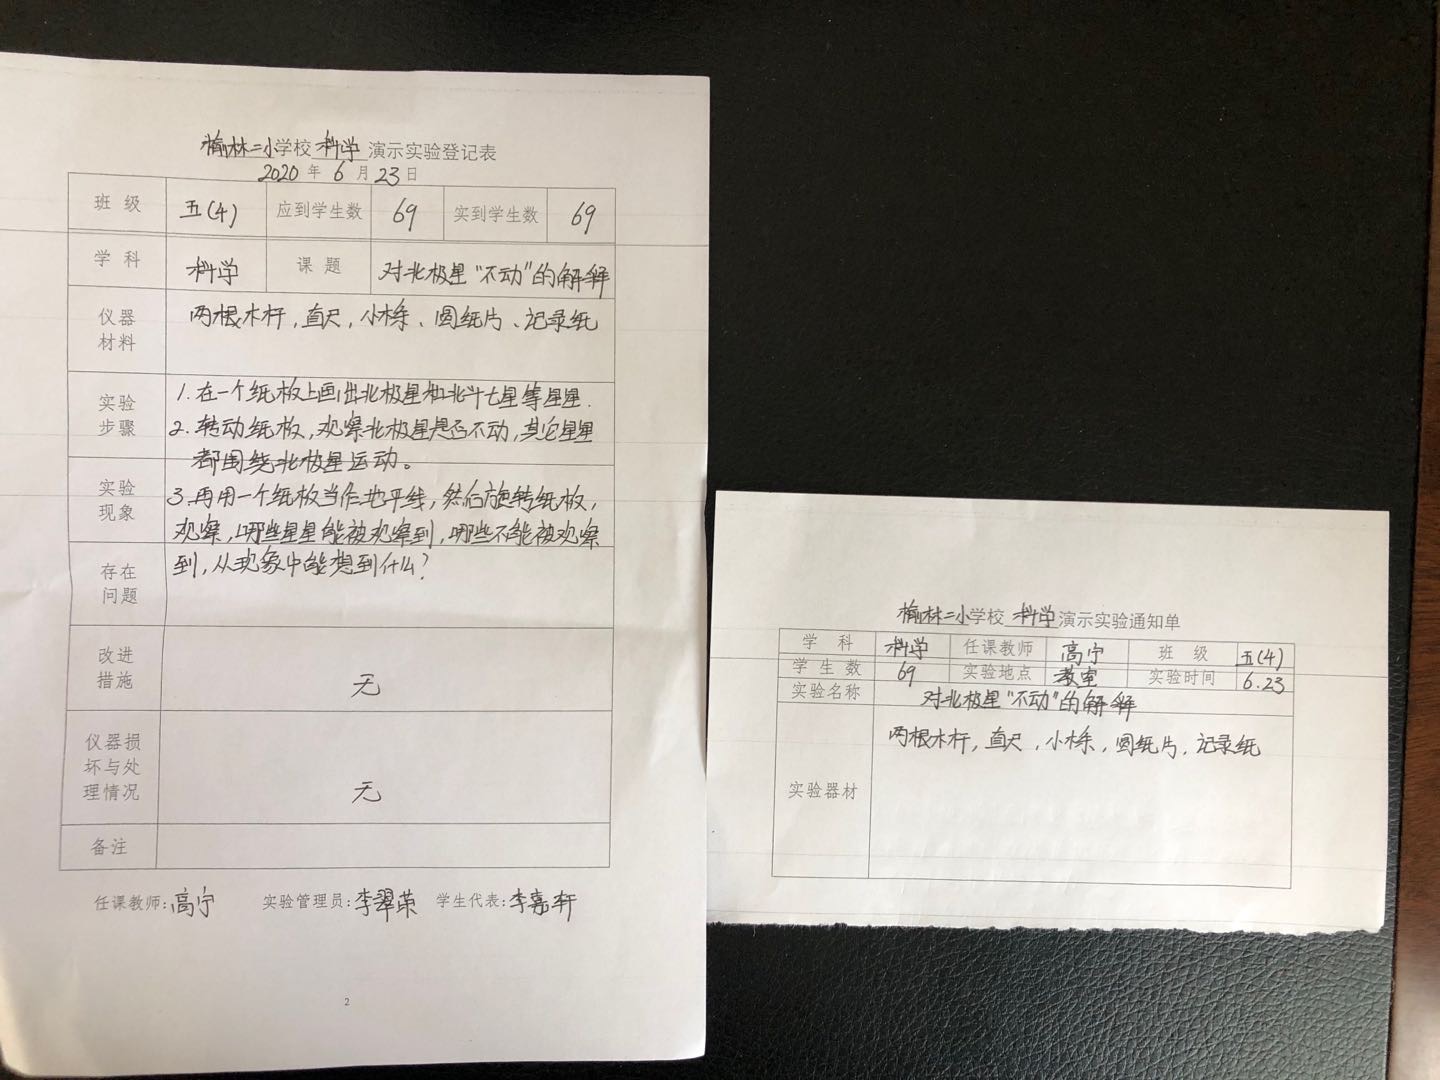 榆林二小学校 科学 演示实验登记表
2020 年 6 月 23 日
班 级 五(4) 应到学生数 69 实到学生数 69
学 科 科学 课 题 对北极星“不动”的解释
仪器
材料
两根木杆,直尺,小木条、圆纸片、记录纸
实验
步骤
1.在一个纸板上画出北极星和北斗七星等星星.
2.转动纸板,观察北极星是否不动,其它星星
都围绕北极星运动。
实验
现象
3.再用一个纸板当作地平线,然后旋转纸板,
观察,哪些星星能被观察到,哪些不能被观察
到,从现象中能想到什么?
存在
问题
改进
措施
无
仪器损
坏与处
理情况
无
备注
任课教师:高宁 实验管理员:李翠荣 学生代表:李嘉轩
2
榆林二小学校 科学 演示实验通知单
学 科 科学 任课教师 高宁 班 级 五(4)
学 生 数 69 实验地点 教室 实验时间 6.23
实验名称 对北极星“不动”的解释
实验器材
两根木杆,直尺,小木条,圆纸片,记录纸